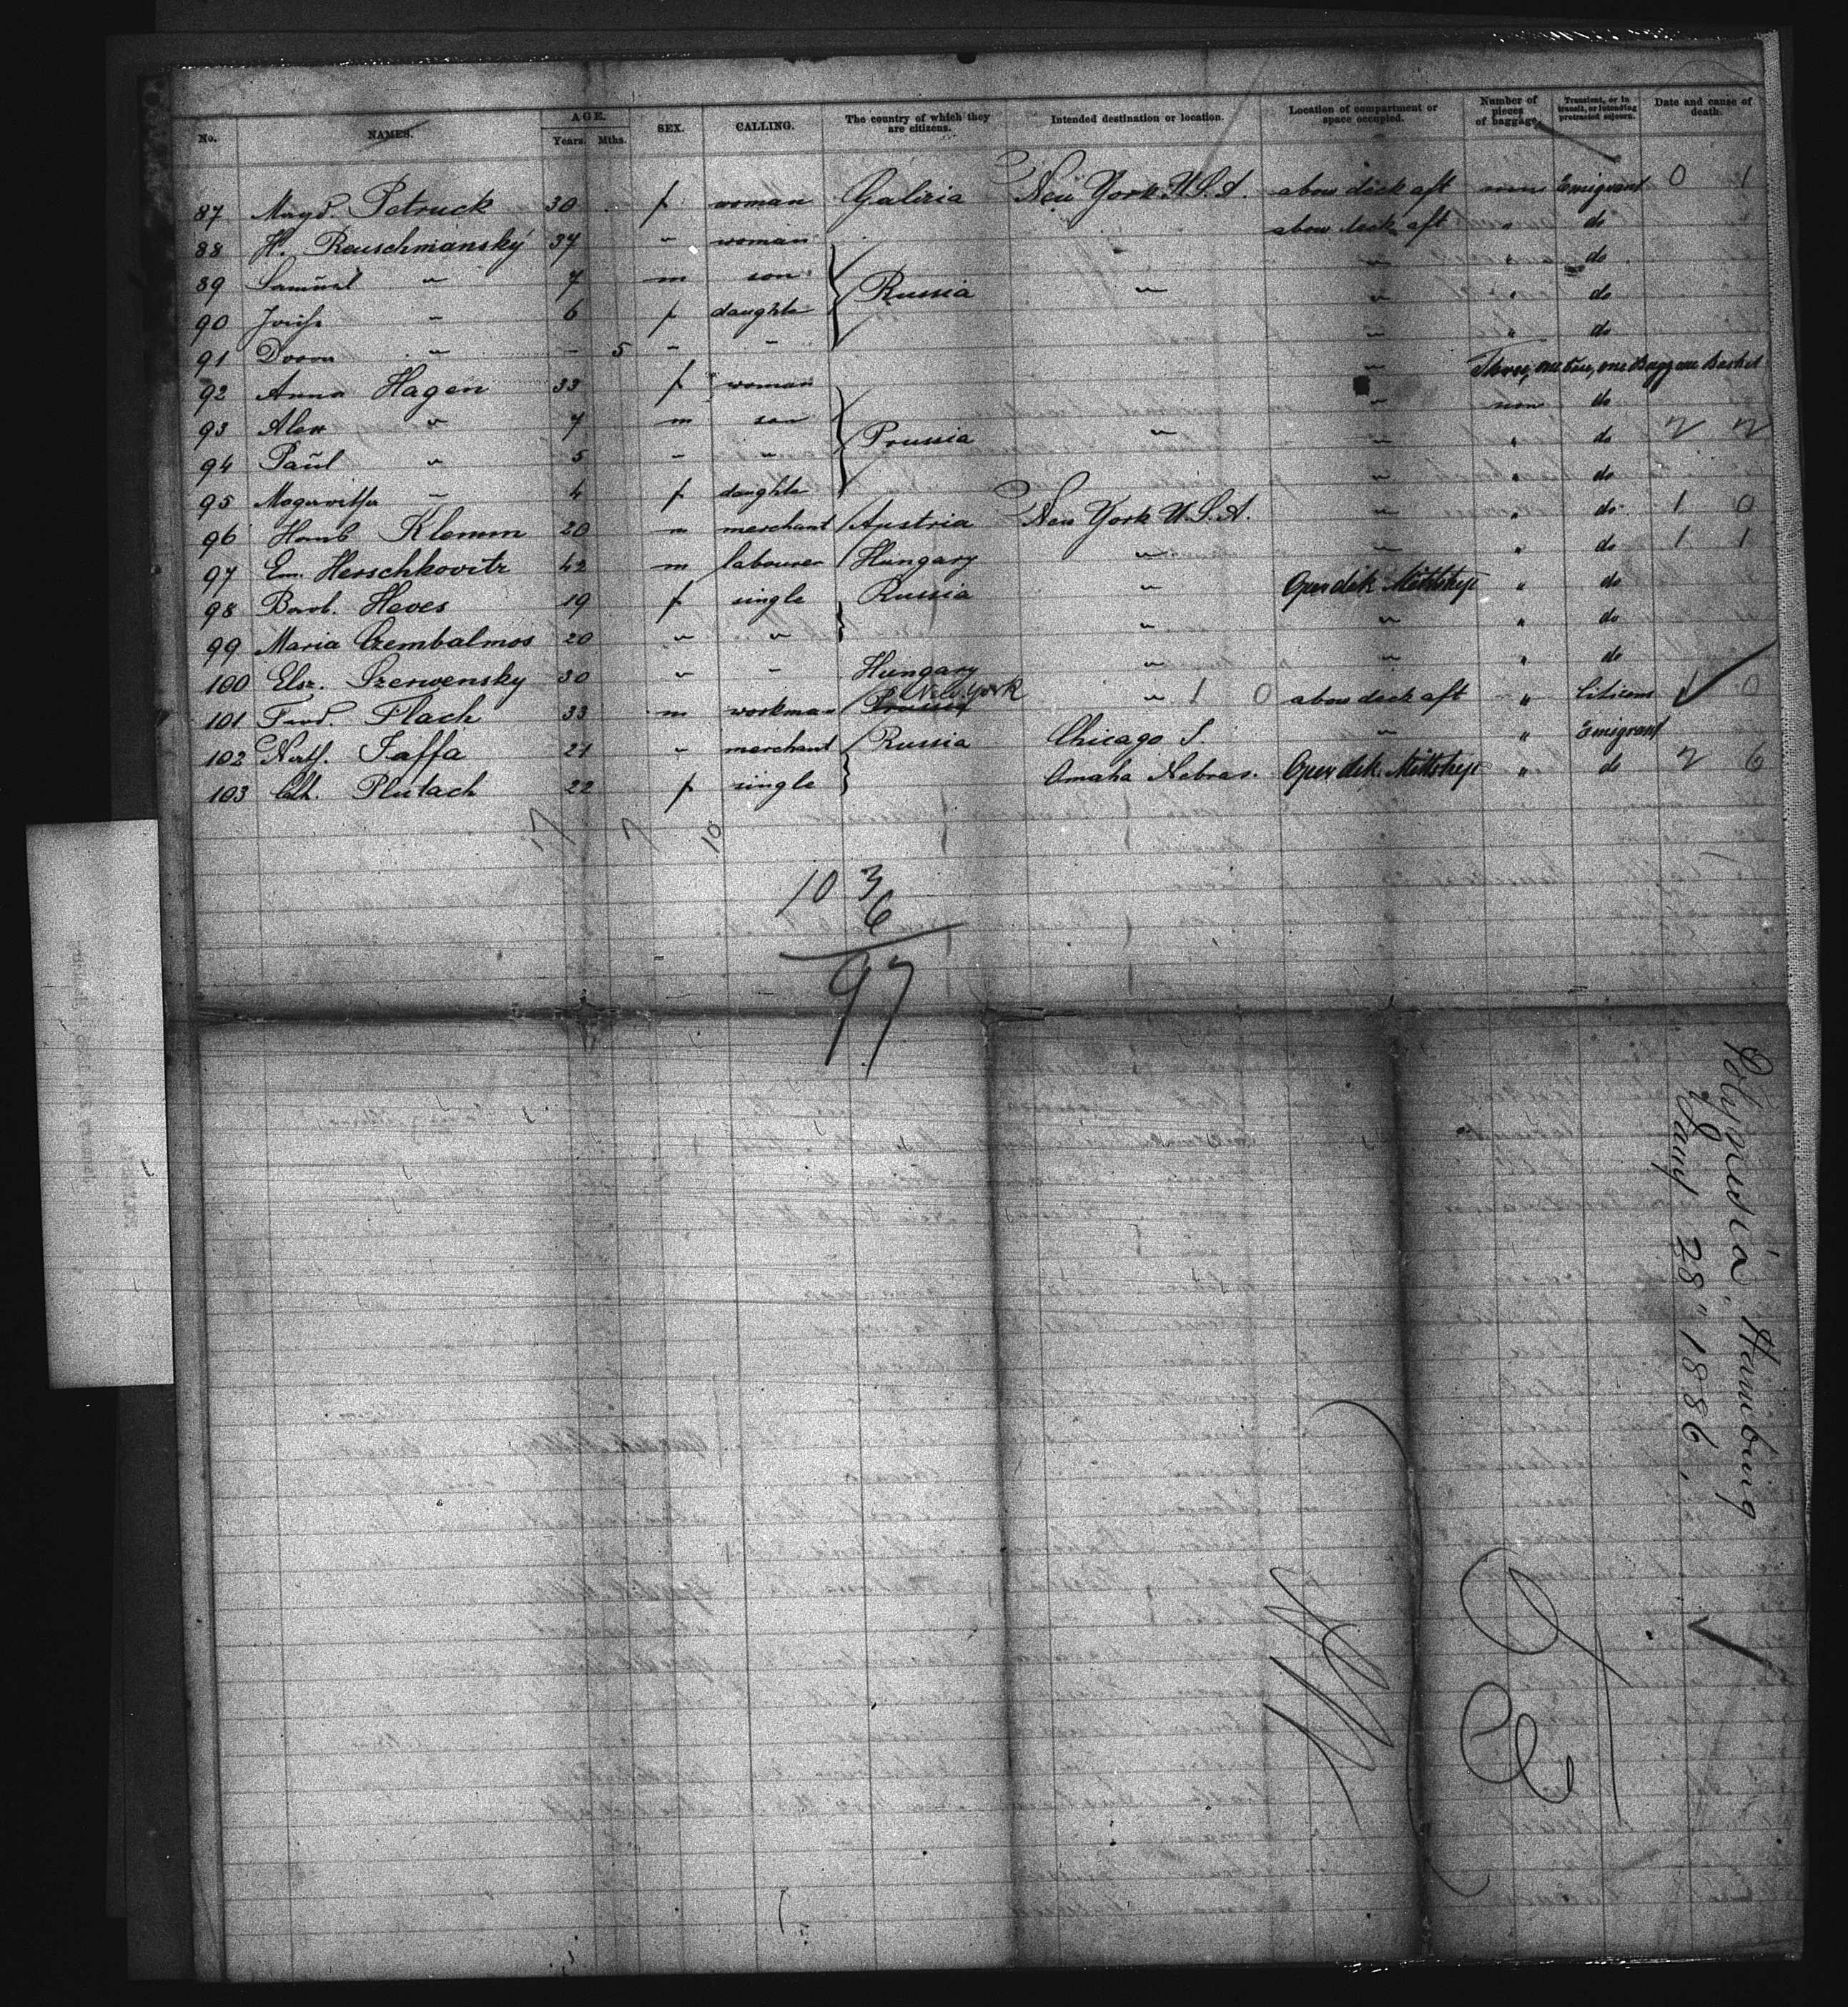 No. NAMES. AGE. Years. Mths. SEX. CALLING. The country of which they are citizens. Intended destination or location. Location of compartment or space occupied. Number of pieces of baggage. Transient, or in transit, or intending protracted sojourn. Date and cause of death.
87 Magd. Petruck 30 f woman Galizia New York U.S.A. above deck aft non Emigrant 0 1
88 H. Reuschmansky 37 " woman above deck aft " do
89 Samuel " 7 m son " " do
90 " 6 f daughter Russia " " " do
91 " - 5 " " " " do
92 Anna Hagen 33 f woman " Three, one box, one Bagg one Basket
93 Alex " 7 m son " non do
94 Paul " 5 " " Prussia " " " do 2 2
95 " 4 f daughter " " do
96 Klemm 20 m merchant Austria New York U.S.A. " " do 1 0
97 Em. Herschkovitz 42 m labourer Hungary " " " do 1 1
98 Barb. Heves 19 f single Russia " " do
99 Maria Czembalmos 20 " " " " " do
100 Elsz. Szerwensky 30 " Hungary " " " do
101 Ferd. Flach 33 m workman New York " 1 0 above deck aft " Citizen 1 0
102 Nath. Jaffa 21 " merchant Russia Chicago " " Emigrant
103 Cath. Plutach 22 f single Omaha Nebras. " do 2 6
17 7 10
103
6
97
Polynesia, Hamburg
Jany 28" 1886.